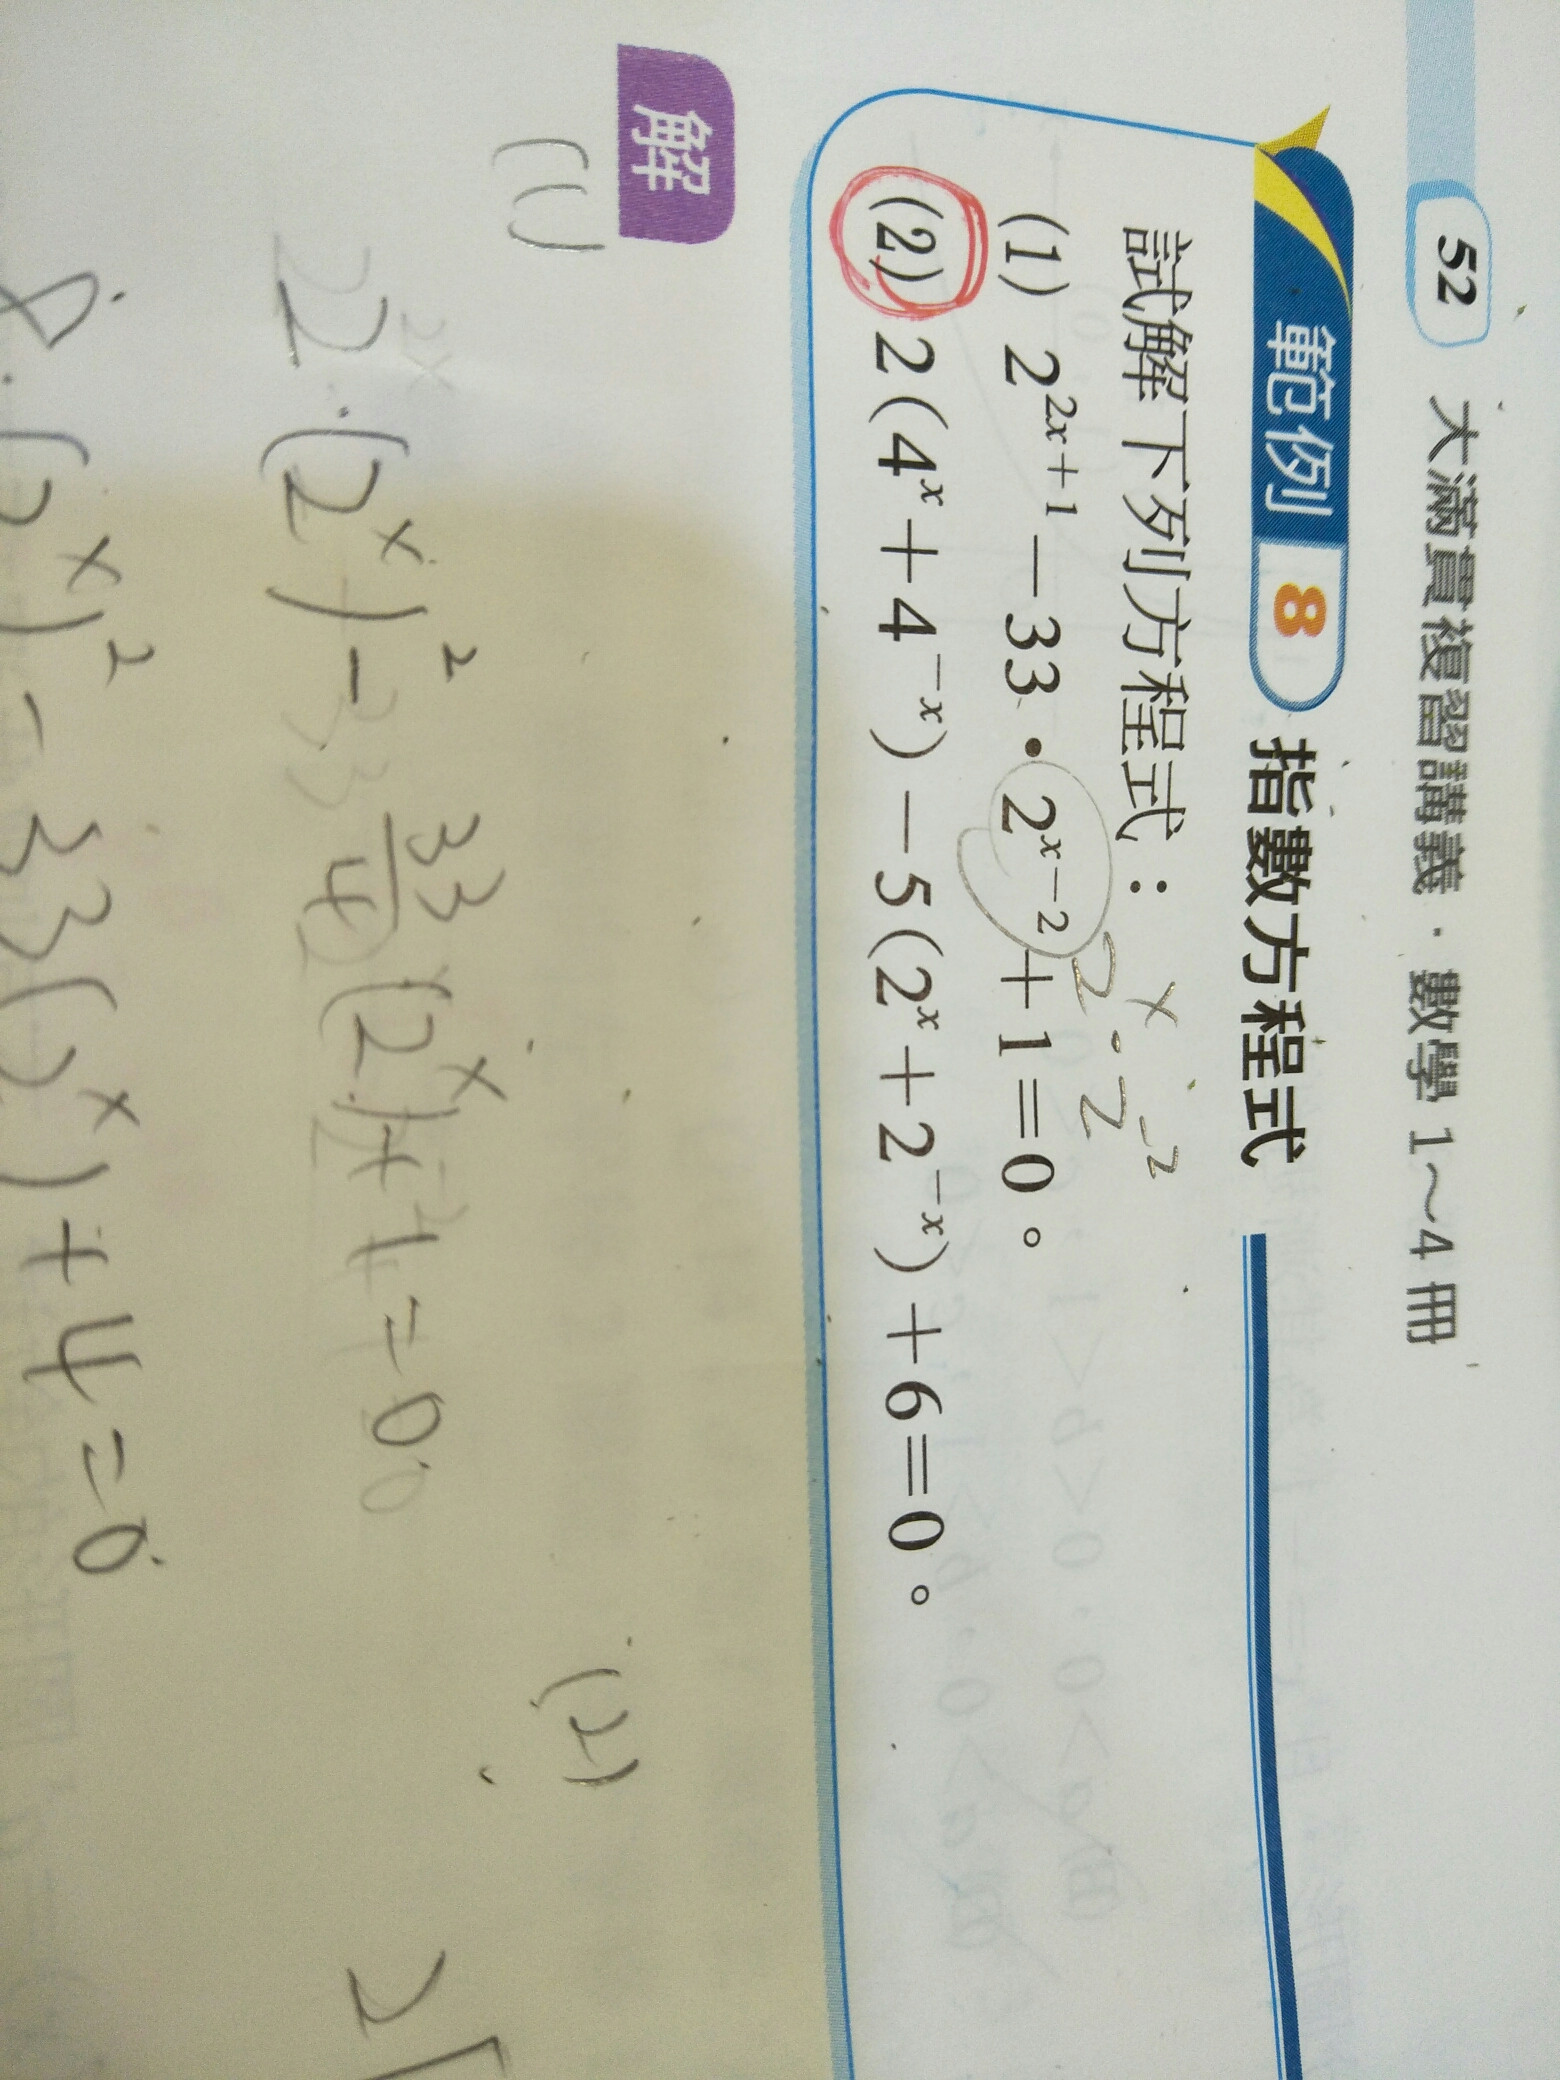 52 大滿貫複習講義・數學 1～4 冊
範例 8 指數方程式
試解下列方程式：
(1) 2^{2x+1}－33・2^{x－2}＋1＝0。
2^x・2^{-2}
(2) 2(4^x＋4^{－x})－5(2^x＋2^{－x})＋6＝0。
解
(1)
(2)
2・(2^x)^2 - 33/4 (2^x) + 1 = 0
8・(2^x)^2 - 33(2^x) + 4 = 0